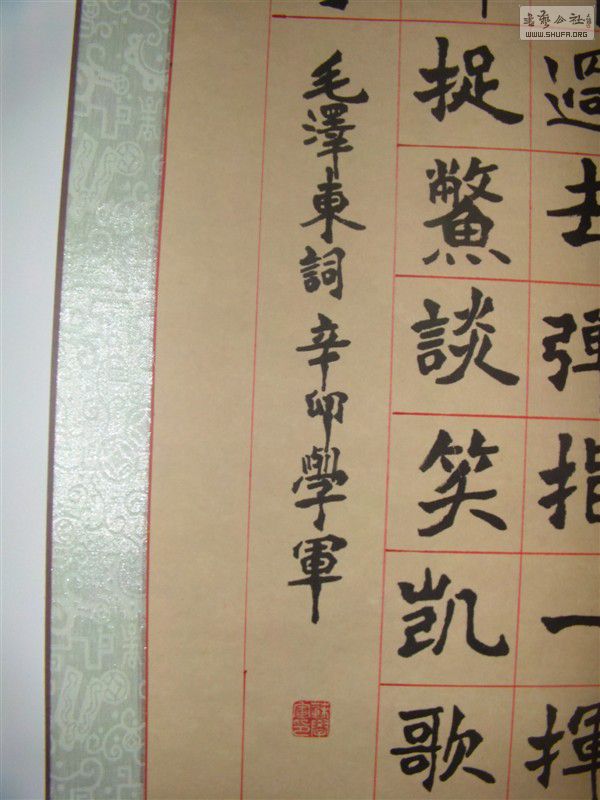 過去彈指一揮
捉鱉談笑凱歌
毛澤東詞 辛卯學軍
书艺公社
WWW.SHUFA.ORG